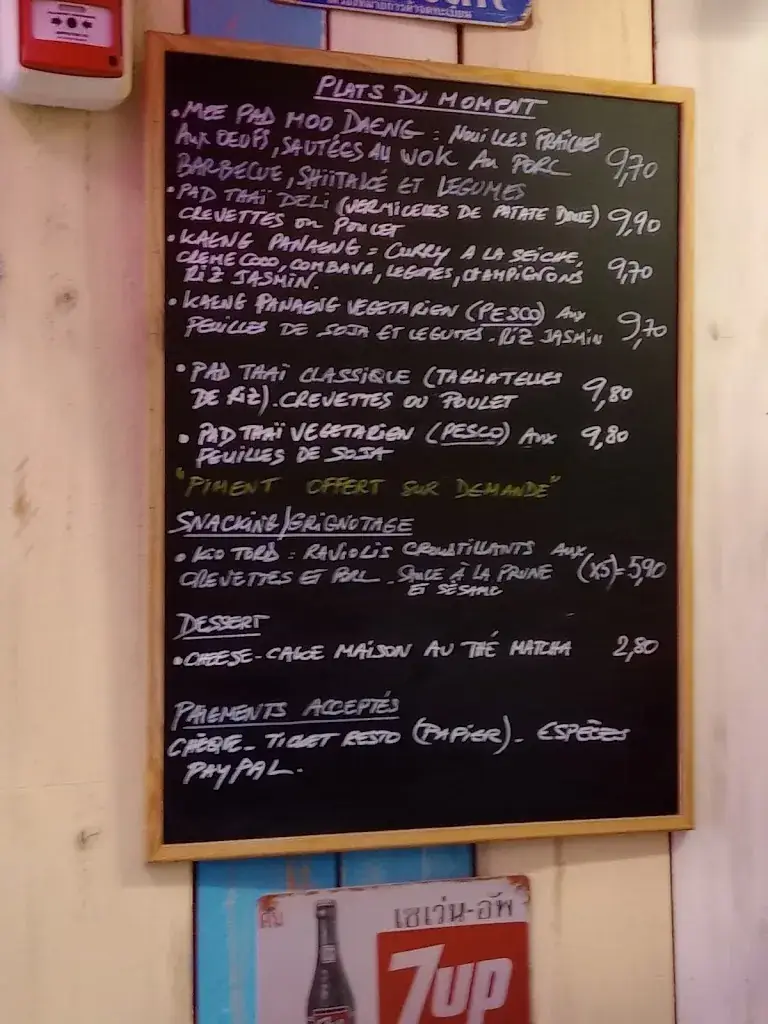 PLATS DU MOMENT
• MEE PAD MOO DAENG : NOUILLES FRAÎCHES
AUX OEUFS, SAUTÉES AU WOK AU PORC
BARBECUE, SHIITAKÉ ET LEGUMES 9,70
• PAD THAÏ DELI (VERMICELLES DE PATATE DOUCE)
CREVETTES OU POULET 9,90
• KAENG PANAENG = CURRY A LA SEICHE,
CREME COCO, COMBAVA, LEGUMES, CHAMPIGNONS 9,70
RIZ JASMIN.
• KAENG PANAENG VEGETARIEN (PESCO) AUX
FEUILLES DE SOJA ET LEGUMES - RIZ JASMIN 9,70
• PAD THAÏ CLASSIQUE (TAGLIATELLES
DE RIZ). CREVETTES OU POULET 9,80
• PAD THAÏ VEGETARIEN (PESCO) AUX 9,80
FEUILLES DE SOJA
"PIMENT OFFERT SUR DEMANDE"
SNACKING/GRIGNOTAGE
• KIO TORD : RAVIOLIS CROUSTILLANTS AUX
CREVETTES ET PORC - SAUCE À LA PRUNE (X5)=5,90
ET SÉSAME
DESSERT
• CHEESE-CAKE MAISON AU THÉ MATCHA 2,80
PAIEMENTS ACCEPTÉS
CHÈQUE - TICKET RESTO (PAPIER) - ESPÈCES
PAYPAL.
ดื่ม เซเว่น-อัพ
7up